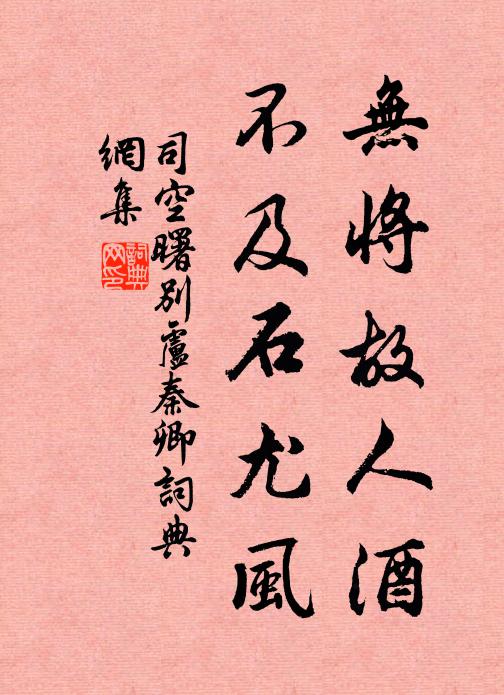 無將故人酒
不及石尤風
司空曙別盧秦卿詞典
網集
詞典
网印